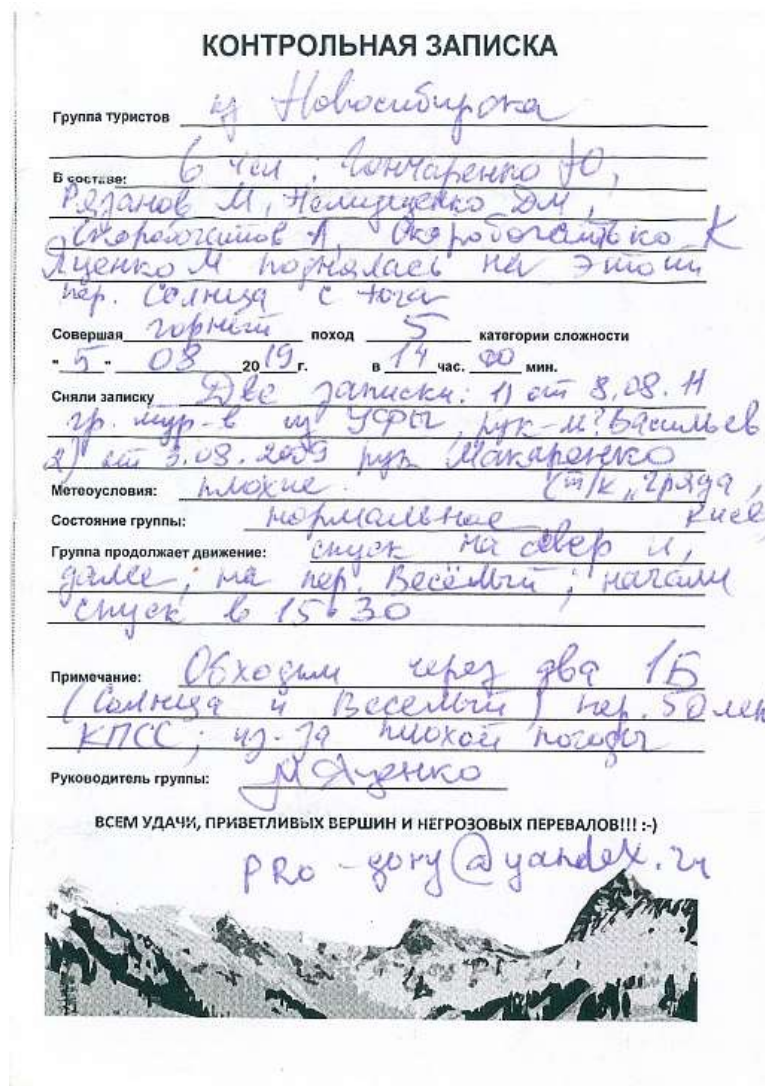 КОНТРОЛЬНАЯ ЗАПИСКА
Группа туристов из Новосибирска
В составе: 6 чел: Гончаренко Ю,
Рязанов М, ДМ,
А, К
Яценко М поднялась на этот
пер. Солнца с юга
Совершая горный поход 5 категории сложности
"5" 08 2019 г. в 14 час. 00 мин.
Сняли записку Две записки: 1) от 8.08.11
гр. тур-в из Уфы, рук-ль? Васильев
2) от 3.08.2009 рук Макаренко
Метеоусловия: плохие. (т/к "Гряда",
Состояние группы: нормальное
Группа продолжает движение: спуск на север и,
далее, на пер. Весёлый; начали
спуск в 15:30
Примечание: Обходим через два 1Б
(Солнца и Веселый) пер. 50 лет
КПСС; из-за плохой погоды
Руководитель группы: МЯценко
ВСЕМ УДАЧИ, ПРИВЕТЛИВЫХ ВЕРШИН И НЕГРОЗОВЫХ ПЕРЕВАЛОВ!!! :-)
PRo-gory@yandex.ru